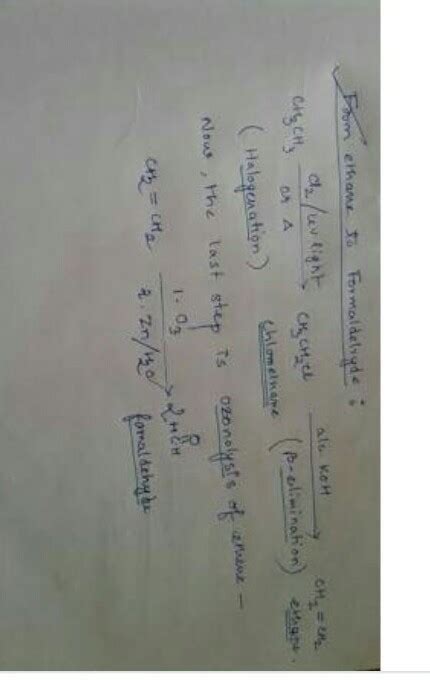 From ethane to Formaldehyde :
CH3CH3 Cl2/uv light or Δ → CH3CH2Cl alc KOH → CH2=CH2
(Halogenation) chloroethane (β-elimination) ethene.
Now, the last step is ozonolysis of ethene –
CH2=CH2 1. O3 2. Zn/H2O → 2HCH O
formaldehyde